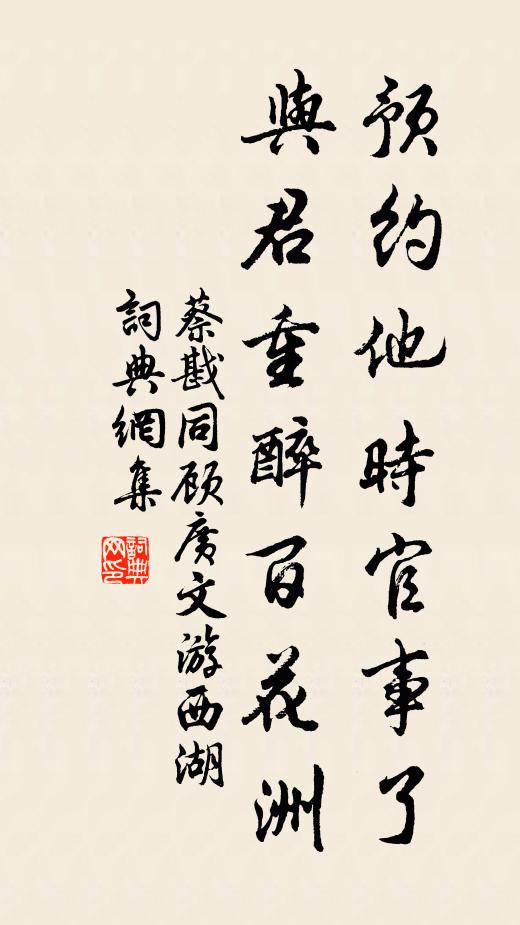 預約他時官事了
與君重醉百花洲
蔡戡同顧廣文游西湖
詞典網集
詞典网印